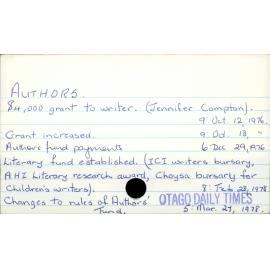 AUTHORS.
$4,000 grant to writer. (Jennifer Compton).
9: Oct. 12, 1976.
Grant increased. 9: Oct. 13, "
Authors fund payments 6: Dec 29, 1976
Literary fund established. (ICI writers bursary,
AHI literary research award, Choysa bursary for
Children's writers). 8: Feb 28, 1978
Changes to rules of Authors'
Fund. 5: Mar. 27, 1978.
OTAGO DAILY TIMES